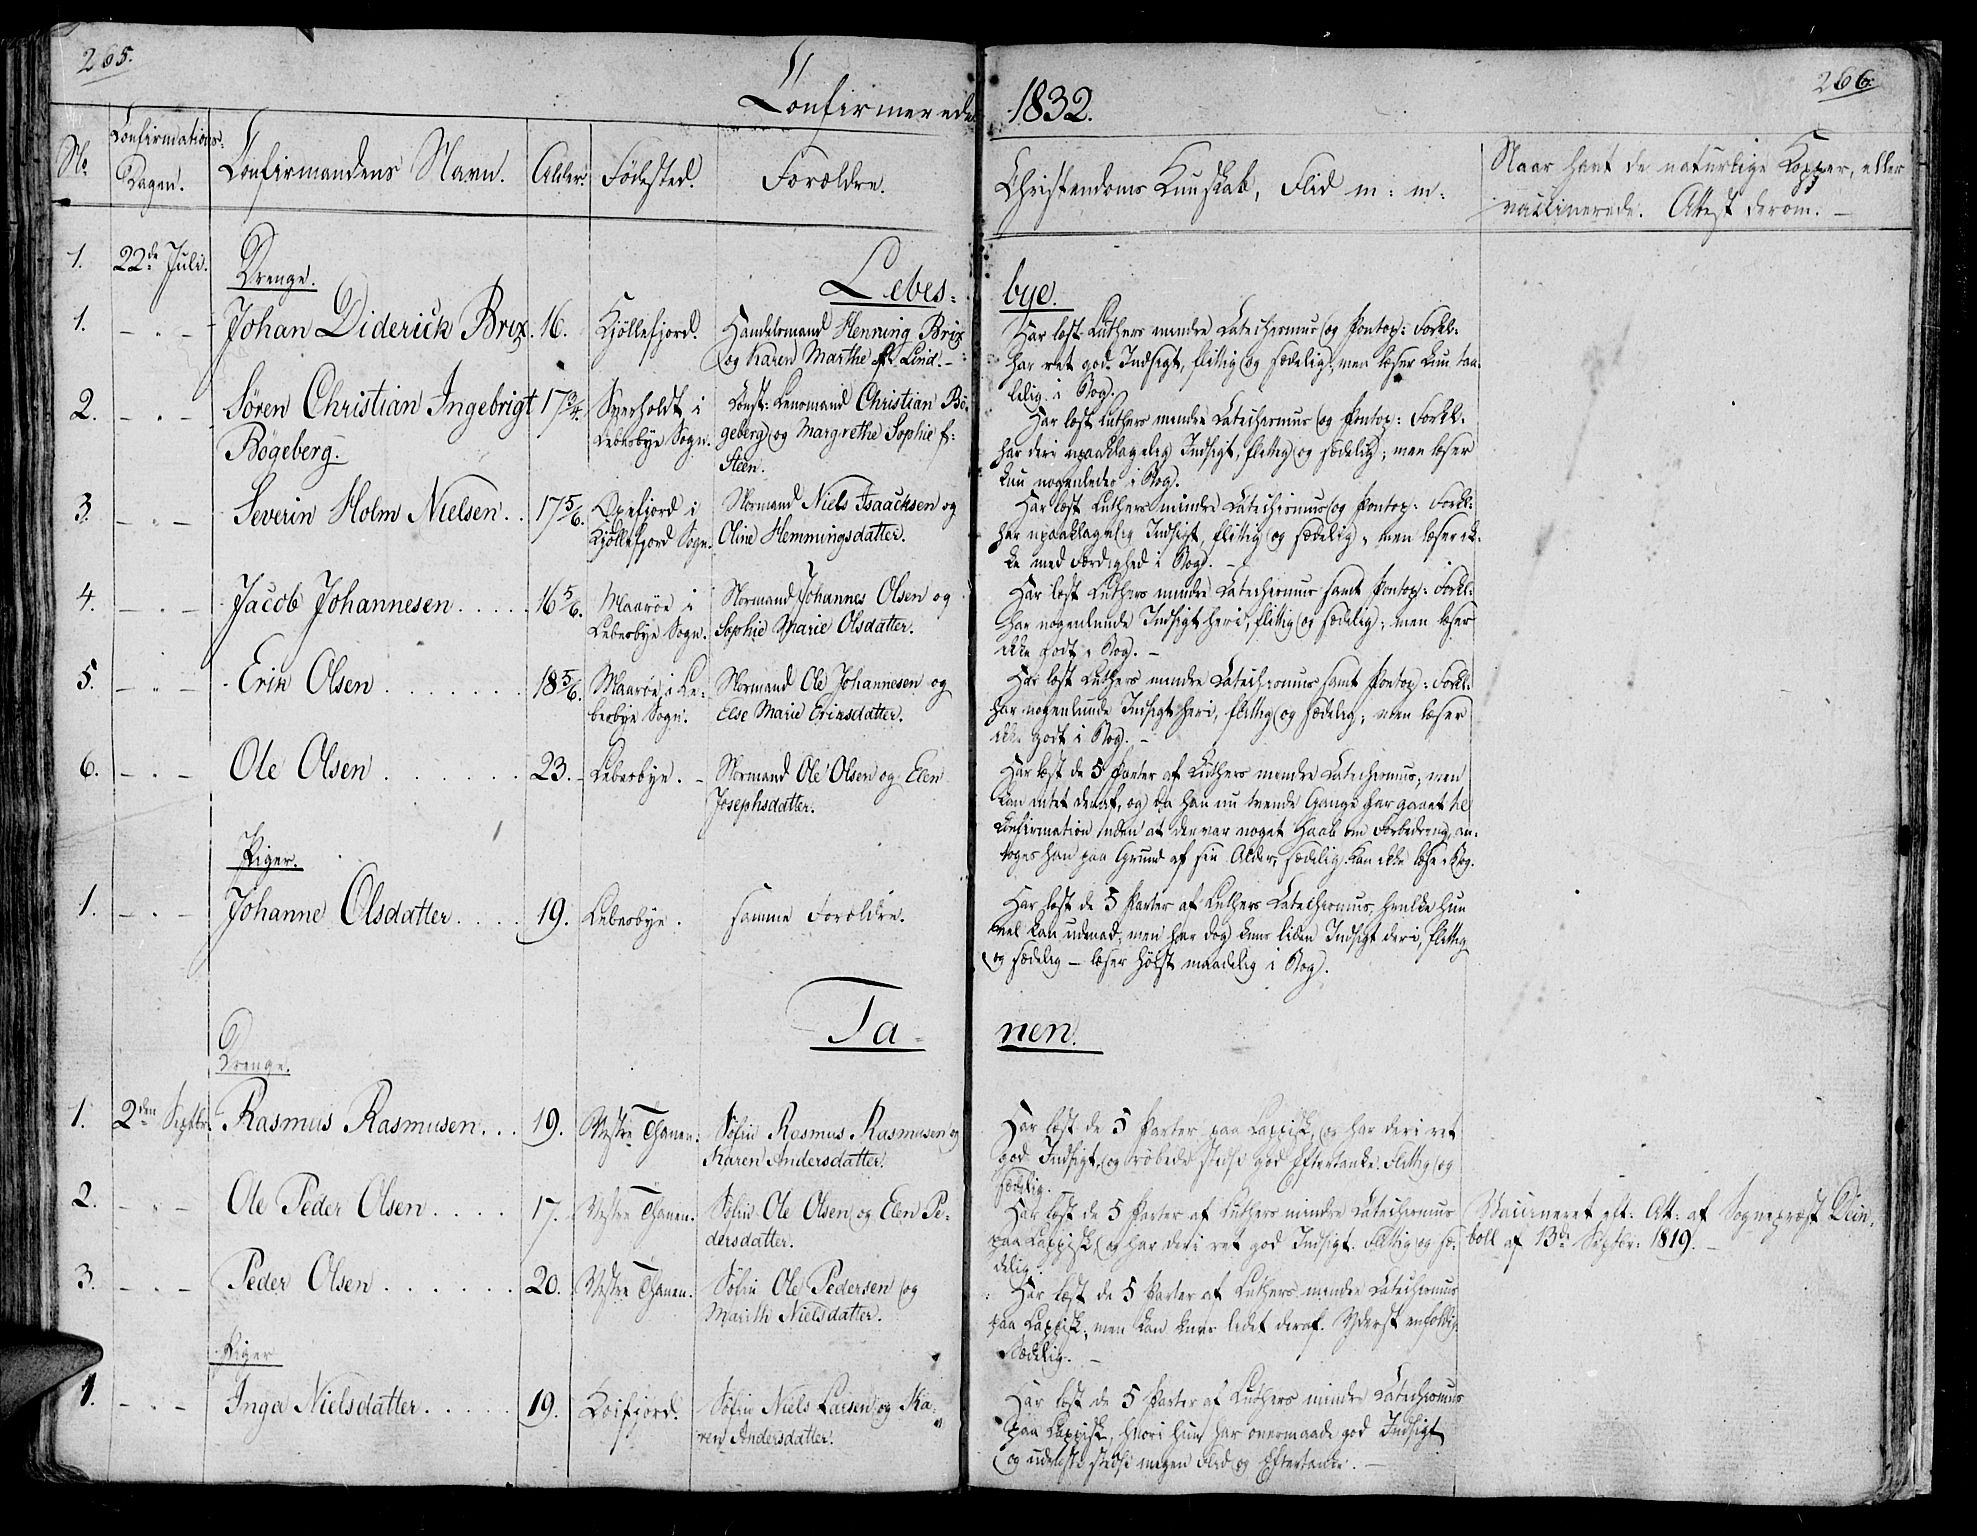 265.
266.
Confirmerede 1832.
No
Confirmations-
Dagen.
Confirmandens Navn.
Alder.
Fødested.
Forældre.
Christendoms Kundskab, Flid m: m:
Naar havt de naturlige Kopper, eller
vaccinerede. Attest derom. –
1. 22de Juli.
Drenge.
Lebes-
bye.
1. – . – Johan Diderick Brix. 16. Kjøllefjord. Handelsmand Henning Brix
og Karen Marthe f. Lind. –
Har læst Luthers mindre Catechismus og Pontop: Forkl:
har ret god Indsigt, flittig og sædelig, men læser kun taa-
lelig i Bog.
2. – . – Søren Christian Ingebrigt 17 3/4. Sverholdt i Const: Lensmand Christian Bø-
Bøgeberg. Lebesbye Sogn. geberg og Margrethe Sophie f:
Steen.
Har læst Luthers mindre Catechismus og Pontop: Forkl:
har deri upaaklagelig Indsigt, flittig og sædelig; men læser
kun nogenledes i Bog.
3. – . – Severin Holm Nielsen. . 17 5/6. Oxefjord i Normand Niels Isaachsen og
Kjøllefjord Sogn. Oline Hemmingsdatter.
Har læst Luthers mindre Catechismus og Pontop: Forkl:
har upaaklagelig Indsigt, flittig og sædelig, men læser ik-
ke med Færdighed i Bog. –
4. – . – Jacob Johannesen . . . . . 16 5/6. Maarøe i Normand Johannes Olsen og
Lebesbye Sogn. Sophie Marie Olsdatter.
Har læst Luthers mindre Catechismus samt Pontop: Forkl:
har nogenlunde Indsigt heri, flittig og sædelig; men læser
ikke godt i Bog. –
5. – . – Erik Olsen . . . . . . . 18 5/6. Maarøe i Le- Normand Ole Johannesen og
besbye Sogn. Else Marie Eriksdatter.
Har læst Luthers mindre Catechismus samt Pontop: Forkl:
har nogenlunde Indsigt heri, flittig og sædelig; men læser
ikke godt i Bog. –
6. – . – Ole Olsen . . . . . . . 23. Lebesbye. – Normand Ole Olsen og Elen
Josephsdatter.
Har læst de 5 Parter af Luthers mindre Catechismus, men
kan intet deraf, og da han nu tvende Gange har gaaet til
Confirmation uden at der var noget Haab om Forbedring, an-
toges han paa Grund af sin Alder, sædelig. kan ikke læse i Bog.
Piger.
1. – . – Johanne Olsdatter . . . . 19. Lebesbye. samme Forældre.
Har læst de 5 Parter af Luthers Catechismus, hvilke hun
vel kan udenad, men har dog kuns liden Indsigt deri, flittig
og sædelig – læser høist maadelig i Bog.
Ta-
nen.
Drenge.
1. 2den Septbr. Rasmus Rasmusen . . . 19. Vestre Thanen. Søfin Rasmus Rasmusen og
Karen Andersdatter.
Har læst de 5 Parter paa Lappisk, og har deri ret
god Indsigt, og røbede stedse god Eftertanke. Flittig og
sædelig.
2. – . – Ole Peder Olsen . . . . 17. Vestre Thanen. Søfin Ole Olsen og Elen Pe-
dersdatter.
Har læst de 5 Parter af Luthers mindre Catechismus
paa Lappisk, og har deri ret god Indsigt. Flittig og sæ-
delig.
Vaccineret eft: Att: af Sognepræst Dein-
boll af 13de Septbr: 1819. –
3. – . – Peder Olsen . . . . . . 20. Vestre Thanen. Søfin Ole Pedersen og
Marith Nielsdatter.
Har læst de 5 Parter af Luthers mindre Catechismus
paa Lappisk, men kan kuns lidet deraf. Yderst enfoldig.
Sædelig. –
Piger
1. – . – Inga Nielsdatter . . . . . 19. Søfin Niels Larsen og Ka-
ren Andersdatter.
Har læst de 5 Parter af Luthers mindre Catechismus
paa Lappisk, hvori hun har overmaade god Indsigt
og udviste stedse megen Flid og Eftertanke. –